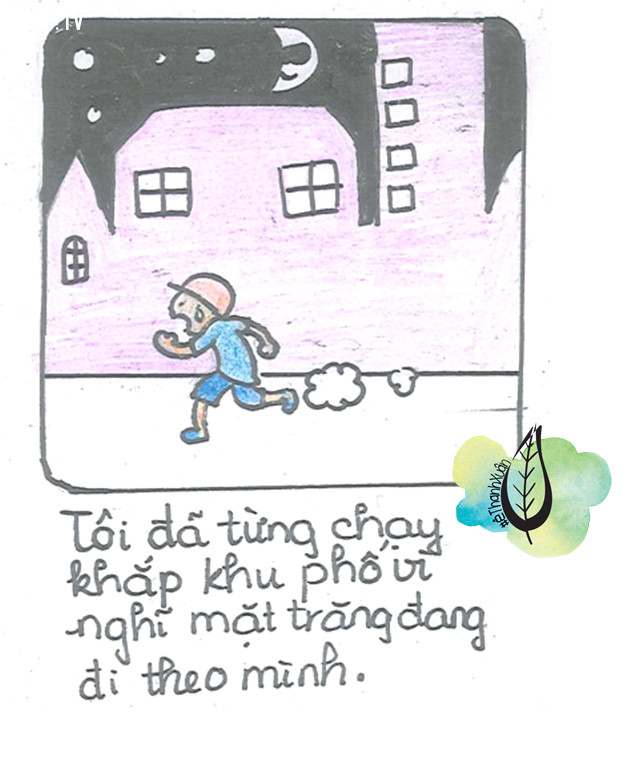 .TV
Tôi đã từng chạy
khắp khu phố vì
nghĩ mặt trăng đang
đi theo mình.
ThanhXuân